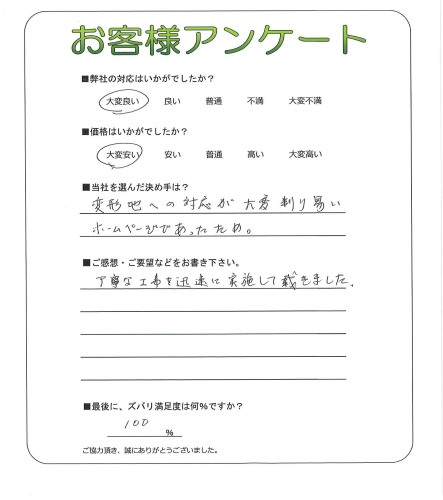 お客様アンケート
■弊社の対応はいかがでしたか？
大変良い 良い 普通 不満 大変不満
■価格はいかがでしたか？
大変安い 安い 普通 高い 大変高い
■当社を選んだ決め手は？
変形地への対応が大変判り易い
ホームページであったため。
■ご感想・ご要望などをお書き下さい。
丁寧な工事を迅速に実施して戴きました。
■最後に、ズバリ満足度は何％ですか？
100 ％
ご協力頂き、誠にありがとうございました。